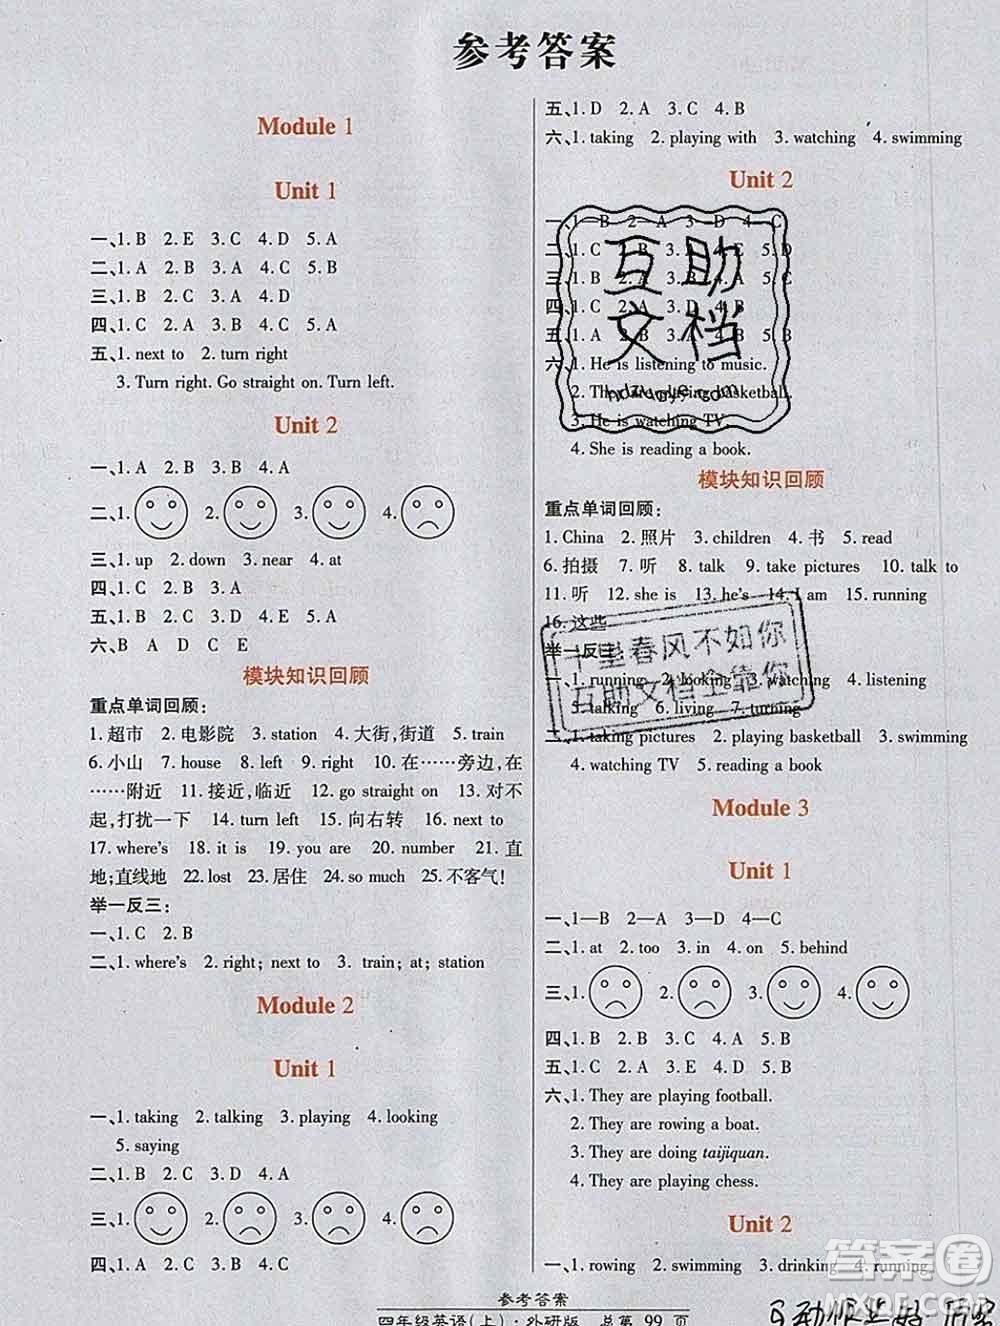 参考答案
Module 1
Unit 1
一、1. B 2. E 3. C 4. D 5. A
二、1. B 2. B 3. A 4. C 5. B
三、1. B 2. C 3. A 4. D
四、1. C 2. C 3. B 4. C 5. B
五、1. next to 2. turn right
3. Turn right. Go straight on. Turn left.
Unit 2
一、1. A 2. B 3. B 4. A
二、1. 2. 3. 4.
三、1. up 2. down 3. near 4. at
四、1. C 2. B 3. A
五、1. A 2. C 3. B 4. C 5. B
六、B A D C E
模块知识回顾
重点单词回顾：
1. 超市 2. 电影院 3. station 4. 大街，街道 5. train
6. 小山 7. house 8. left 9. right 10. 在……旁边，在
……附近 11. 接近，临近 12. go straight on 13. 对不
起，打扰一下 14. turn left 15. 向右转 16. next to
17. where's 18. it is 19. you are 20. number 21. 直
地；直线地 22. lost 23. 居住 24. so much 25. 不客气！
举一反三：
一、1. C 2. B
二、1. where's 2. right; next to 3. train; at; station
Module 2
Unit 1
一、1. taking 2. talking 3. playing 4. looking
5. saying
二、1. B 2. C 3. D 4. A
三、1. 2. 3. 4.
四、1. A 2. C 3. B 4. A 5. B
五、1. D 2. A 3. C 4. B
六、1. taking 2. playing with 3. watching 4. swimming
Unit 2
一、1—B 2—A 3—D 4—C
二、1. C 2. B 4. E 5. D
三、1. B 2. C 5. B
四、1. C 2. A 3. D 4. B
五、1. A 2. B 3. B 4. A 5. B
六、1. He is listening to music.
2. They are playing basketball.
3. He is watching TV.
4. She is reading a book.
互助
文档
模块知识回顾
重点单词回顾：
1. China 2. 照片 3. children 4. 书 5. read
6. 拍摄 7. 听 8. talk 9. take pictures 10. talk to
11. 听 12. she is 13. he's 14. I am 15. running
16. 这些
举一反三：
一、1. running 2. looking 3. watching 4. listening
5. talking 6. living 7. turning
二、1. taking pictures 2. playing basketball 3. swimming
4. watching TV 5. reading a book
千里春风不如你
互助文档全靠你
Module 3
Unit 1
一、1—B 2—A 3—D 4—C
二、1. at 2. too 3. in 4. on 5. behind
三、1. 2. 3. 4.
四、1. B 2. B 3. C 4. A 5. B
五、1. C 2. A 3. A 4. B 5. B
六、1. They are playing football.
2. They are rowing a boat.
3. They are doing taijiquan.
4. They are playing chess.
Unit 2
一、1. rowing 2. swimming 3. drinking 4. running
参考答案
四年级英语(上)·外研版 总第 99 页
答案圈